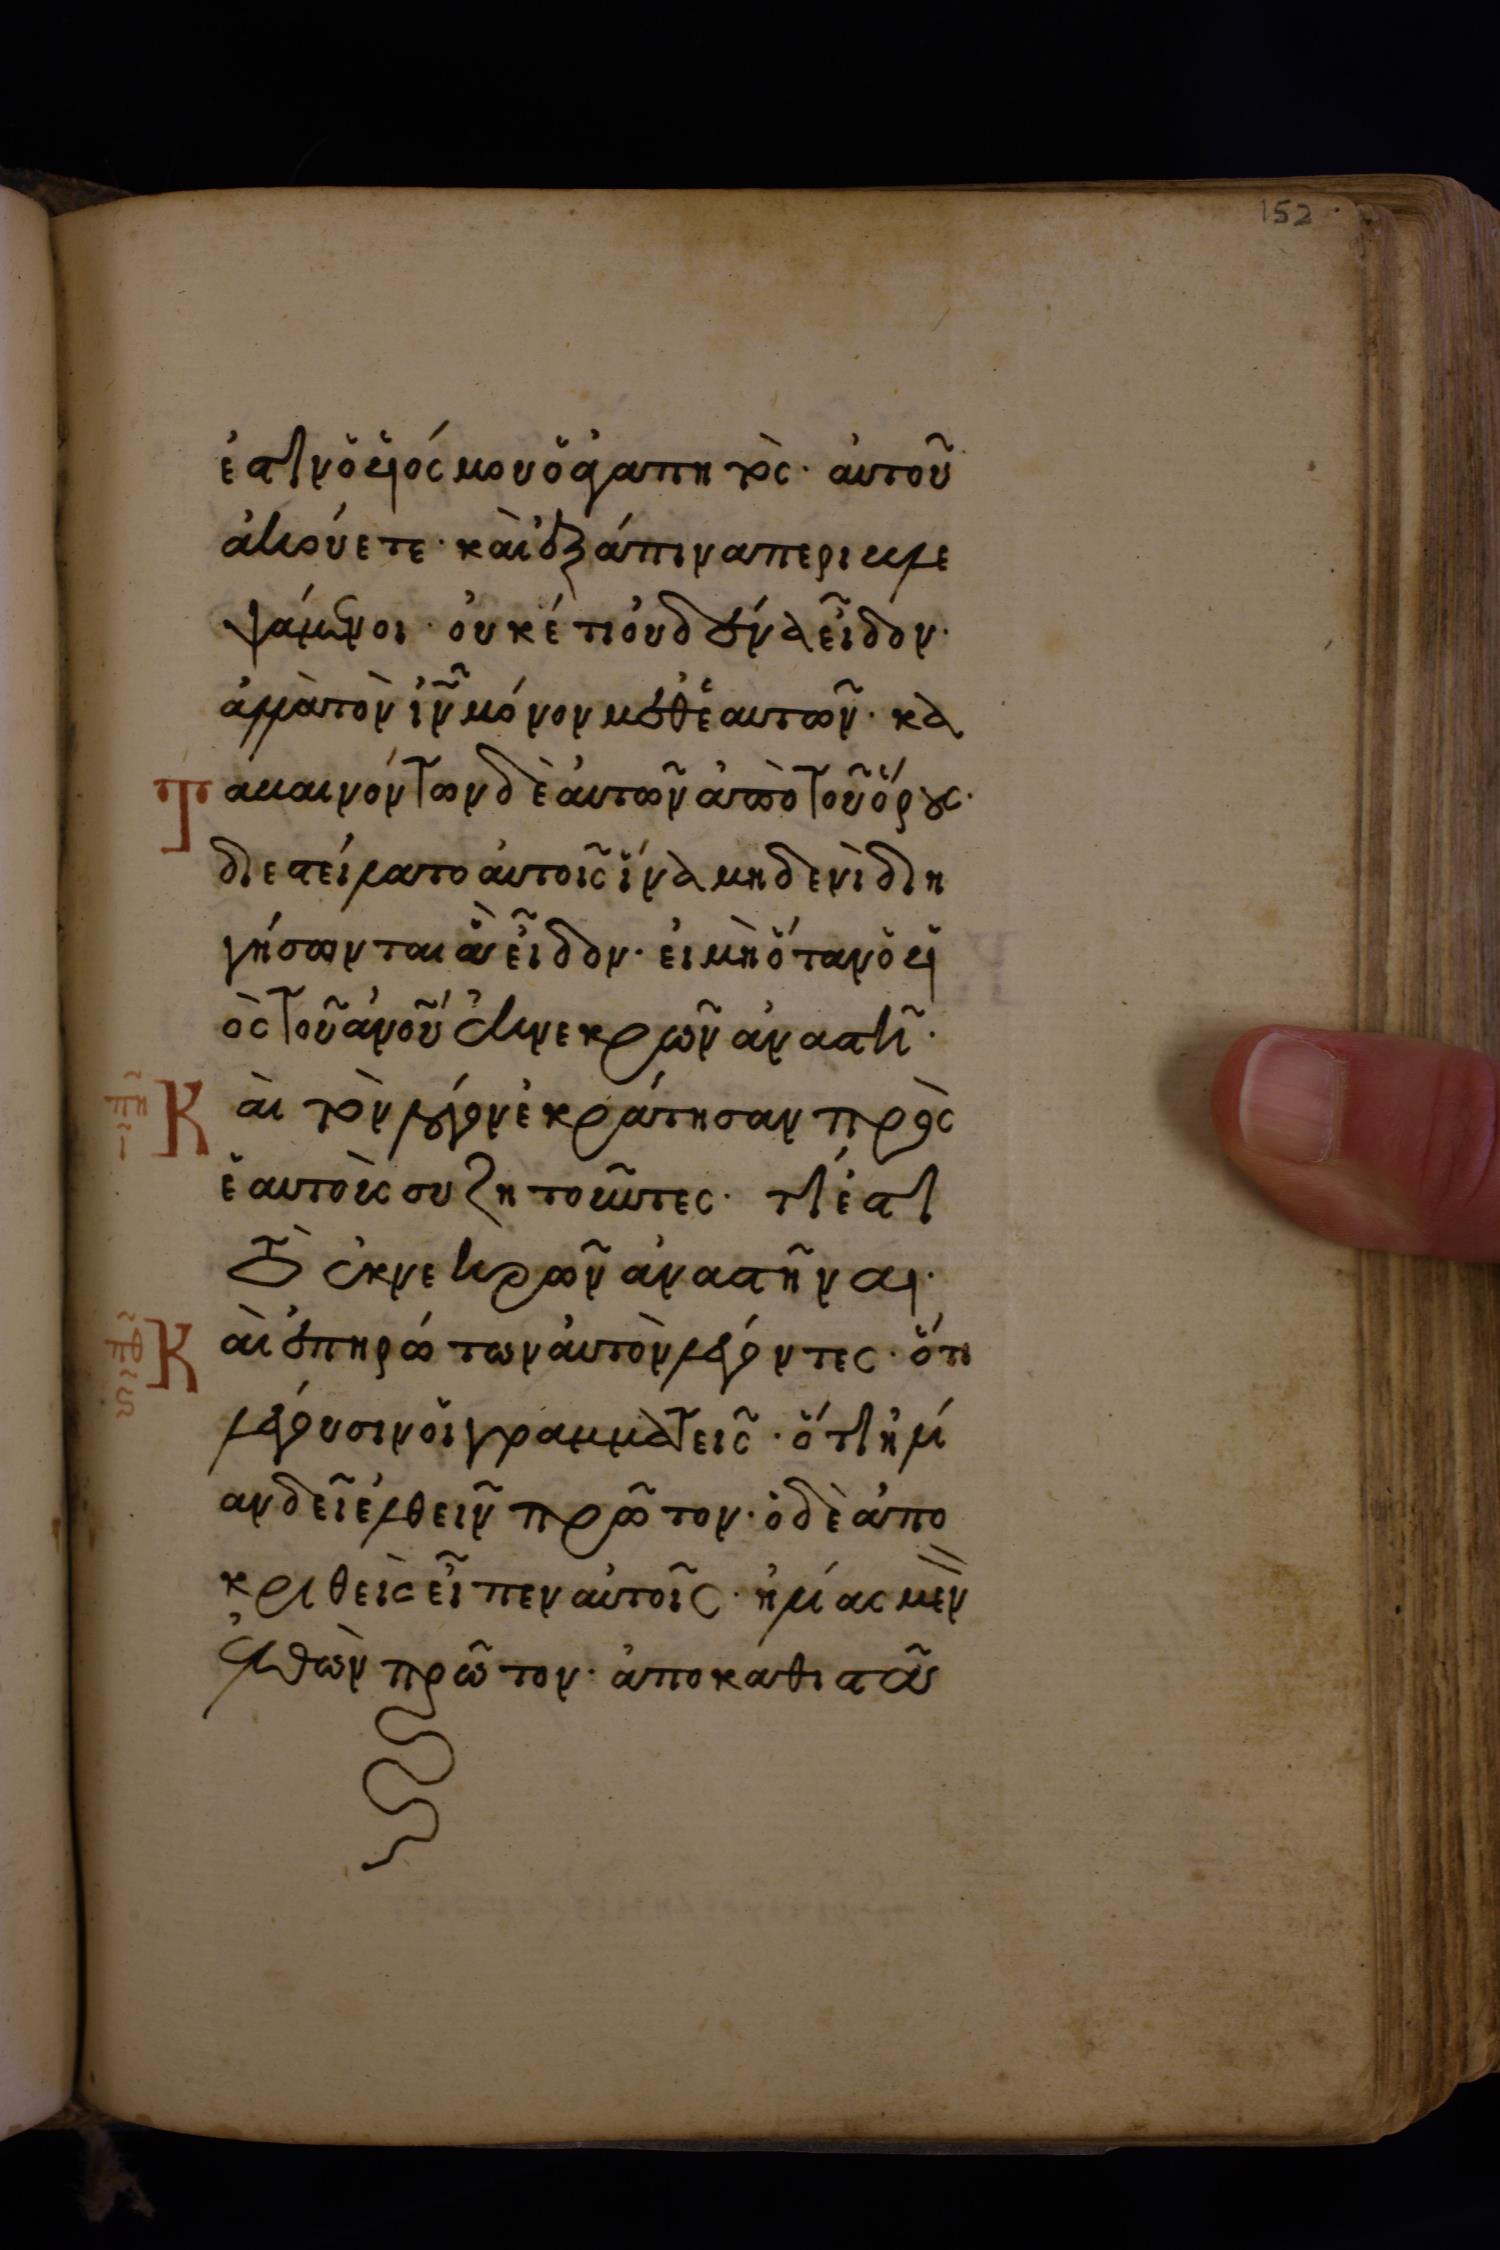 152
ἐστὶν ὁ υἱός μου ὁ ἀγαπητὸς· αὐτοῦ
ἀκούετε· καὶ ἐξάπινα περιβλε
ψάμενοι· οὐκέτι οὐδένα εἶδον·
ἀλλὰ τὸν ἰν̅ μόνον μεθ ἑαυτῶν· κα
Τ ακαινόντων δὲ αὐτῶν ἀπὸ τοῦ ὄρους·
διεστείλατο αὐτοῖς ἵνα μηδενὶ διη
γήσωνται ἃ εἶδον· εἰ μὴ ὅταν ὁ υἱ
ὸς τοῦ ἀνοῦ ἐκ νεκρῶν ἀναστῆ·
Κ αὶ τὸν λόγον ἐκράτησαν πρὸς
ἑαυτοὺς συζητοῦντες· τί ἐστι
τὸ ἐκ νεκρῶν ἀναστῆναι·
Κ αὶ ἐπηρώτων αὐτὸν λέγοντες· ὅτι
λέγουσιν οἱ γραμματεῖς· ὅτι ἠλί
αν δεῖ ἐλθεῖν πρῶτον· ὁ δὲ ἀπο
κριθεὶς εἶπεν αὐτοῖς· ἠλίας μὲν
ἐλθὼν πρῶτον· ἀποκαθιστᾶ